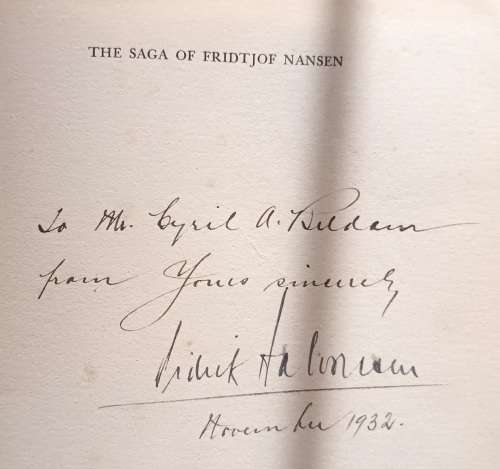 THE SAGA OF FRIDTJOF NANSEN
To Mr. Cyril A. Beldam
from Yours sincerely
November 1932.